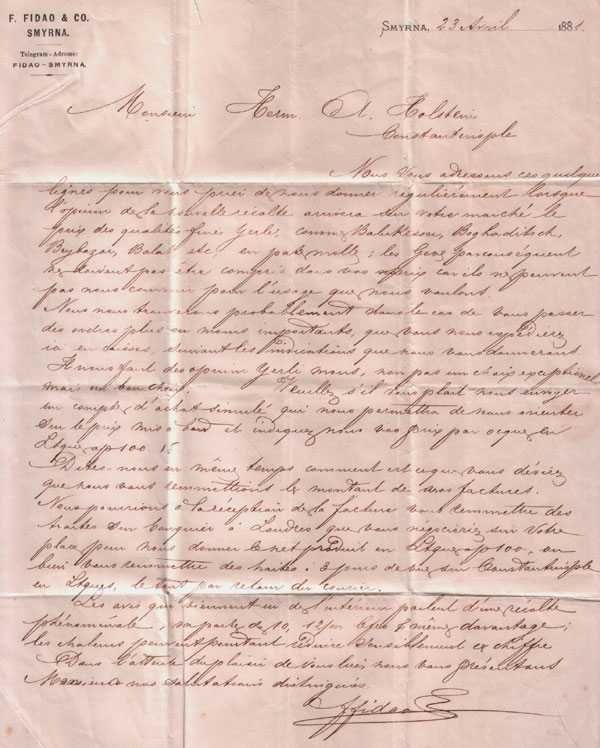 F. FIDAO & CO.
SMYRNA.
Telegram-Adresse:
FIDAO-SMYRNA.
SMYRNA, 23 Avril 1881.
Monsieur Herm. A. Holstein
Constantinople
Nous vous adressons ces quelques
lignes pour vous prier de nous donner régulièrement lorsque
l'opium de la nouvelle récolte arrivera sur votre marché le
prix des qualités fines Yerli, comme Balukessar, Boghaditsch,
Beybazar, Balat etc, en pate molle; les Gevé par conséquent
ne doivent pas être compris dans vos prix car ils ne peuvent
pas nous convenir pour l'usage que nous voulons
Nous nous trouverons probablement dans le cas de vous passer
des ordres plus ou moins importants, que vous nous expédierez
ici en caisses, suivant les indications que nous vous donnerons.
Il nous faut des opium Yerli mous, non pas un choix exceptionel
mais un bon choix. Veuillez s'il vous plait nous envoyer
un compte d'achat simulé qui nous permettra de nous orienter
sur le prix mis à bord et indiquez nous vos prix par ocque en
Ltque 100
Dites-nous en même temps comment est ce que vous désirez
que nous vous remmettions le montant de vos factures.
Nous pourrions à la réception de la facture vous remmettre des
traites sur banquier à Londres que vous negocieriez sur votre
place pour nous donner le net produit en Ltque 100, ou
bien vous remmettre des traites à 3 jours de vue sur Constantinople
en Ltques, le tout par retour du courrier.
Les avis qui viennent ici de l'intérieur parlent d'une récolte
phénoménale: on parle de 10, 12/m et même davantage;
les chaleurs peuvent pourtant réduire sensiblement ce chiffre
Dans l'attente du plaisir de vous lire nous vous présentons
Monsieur nos salutations distinguées.
ffidao